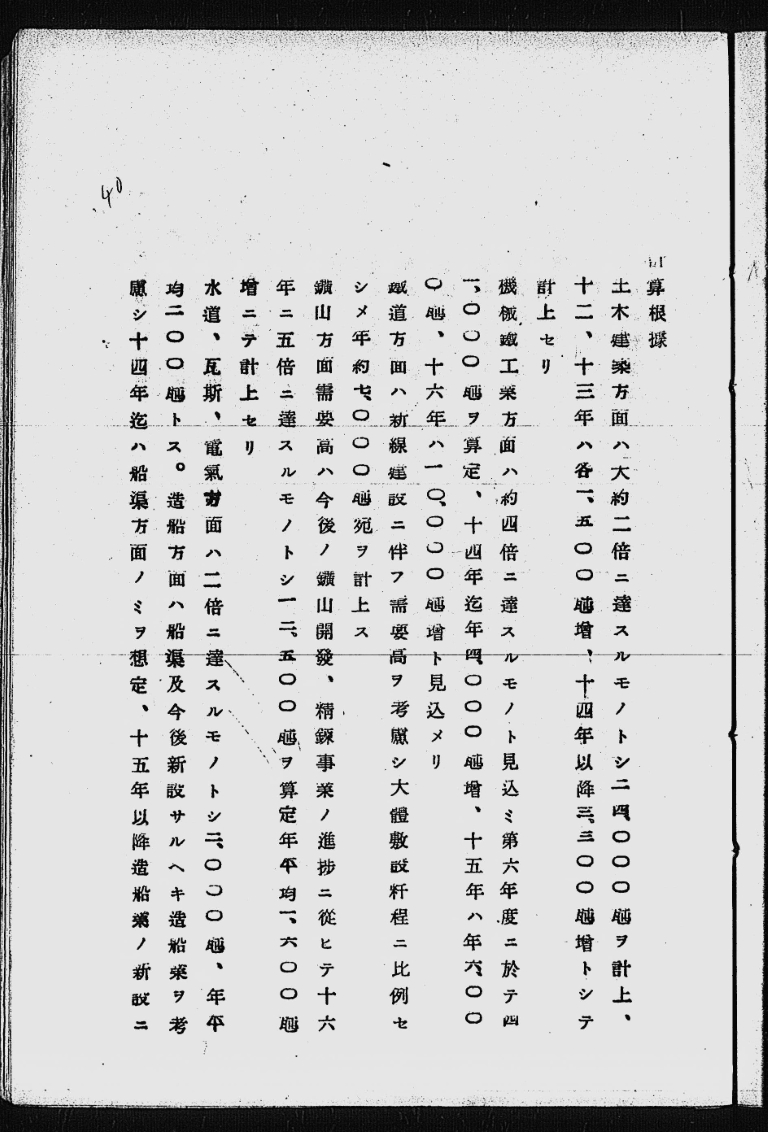 計算根據
土木建築方面ハ大約二倍ニ達スルモノトシ二四、〇〇〇瓲ヲ計上、
十二、十三年ハ各一、五〇〇瓲增、十四年以降三、三〇〇瓲增トシテ
計上セリ
機械鐵工業方面ハ約四倍ニ達スルモノト見込ミ第六年度ニ於テ四
一、〇〇〇瓲ヲ算定、十四年迄年四、〇〇〇瓲增、十五年ハ年六、〇〇
〇瓲、十六年ハ一〇、〇〇〇瓲增ト見込メリ
鐵道方面ハ新線建設ニ伴フ需要高ヲ考慮シ大體敷設粁程ニ比例セ
シメ年約七、〇〇〇瓲宛ヲ計上ス
鑛山方面需要高ハ今後ノ鑛山開發、精鍊事業ノ進捗ニ從ヒテ十六
年ニ五倍ニ達スルモノトシ一二、五〇〇瓲ヲ算定年平均一、六〇〇瓲
增ニテ計上セリ
水道、瓦斯、電氣方面ハ二倍ニ達スルモノトシ二、〇〇〇瓲、年平
均二〇〇瓲トス。造船方面ハ船渠及今後新設サルヘキ造船業ヲ考
慮シ十四年迄ハ船渠方面ノミヲ想定、十五年以降造船業ノ新設ニ
40